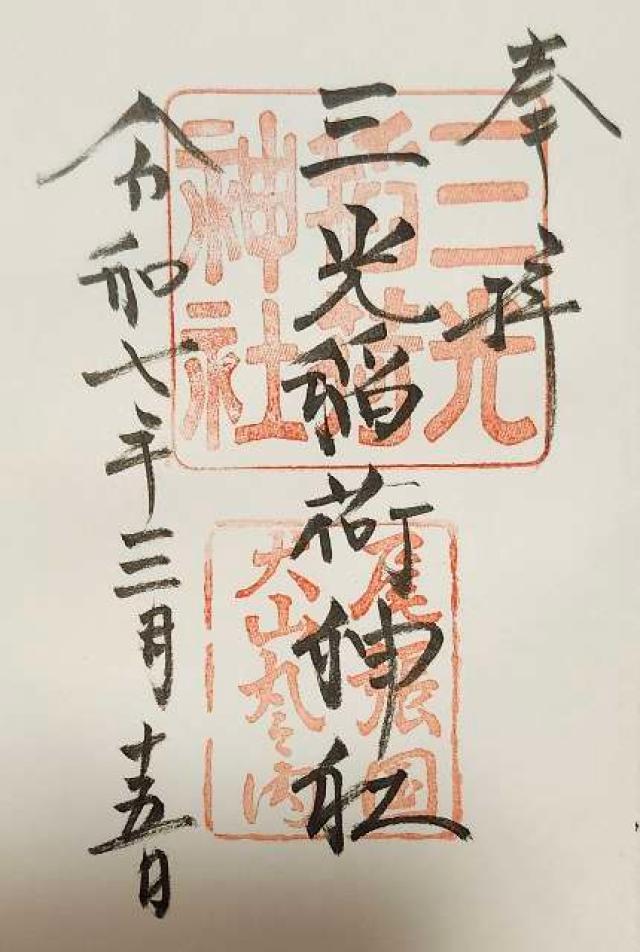 奉拝
三光稲荷神社
三光
稲荷
神社
尾張国
犬山丸之内
令和七年三月十五日